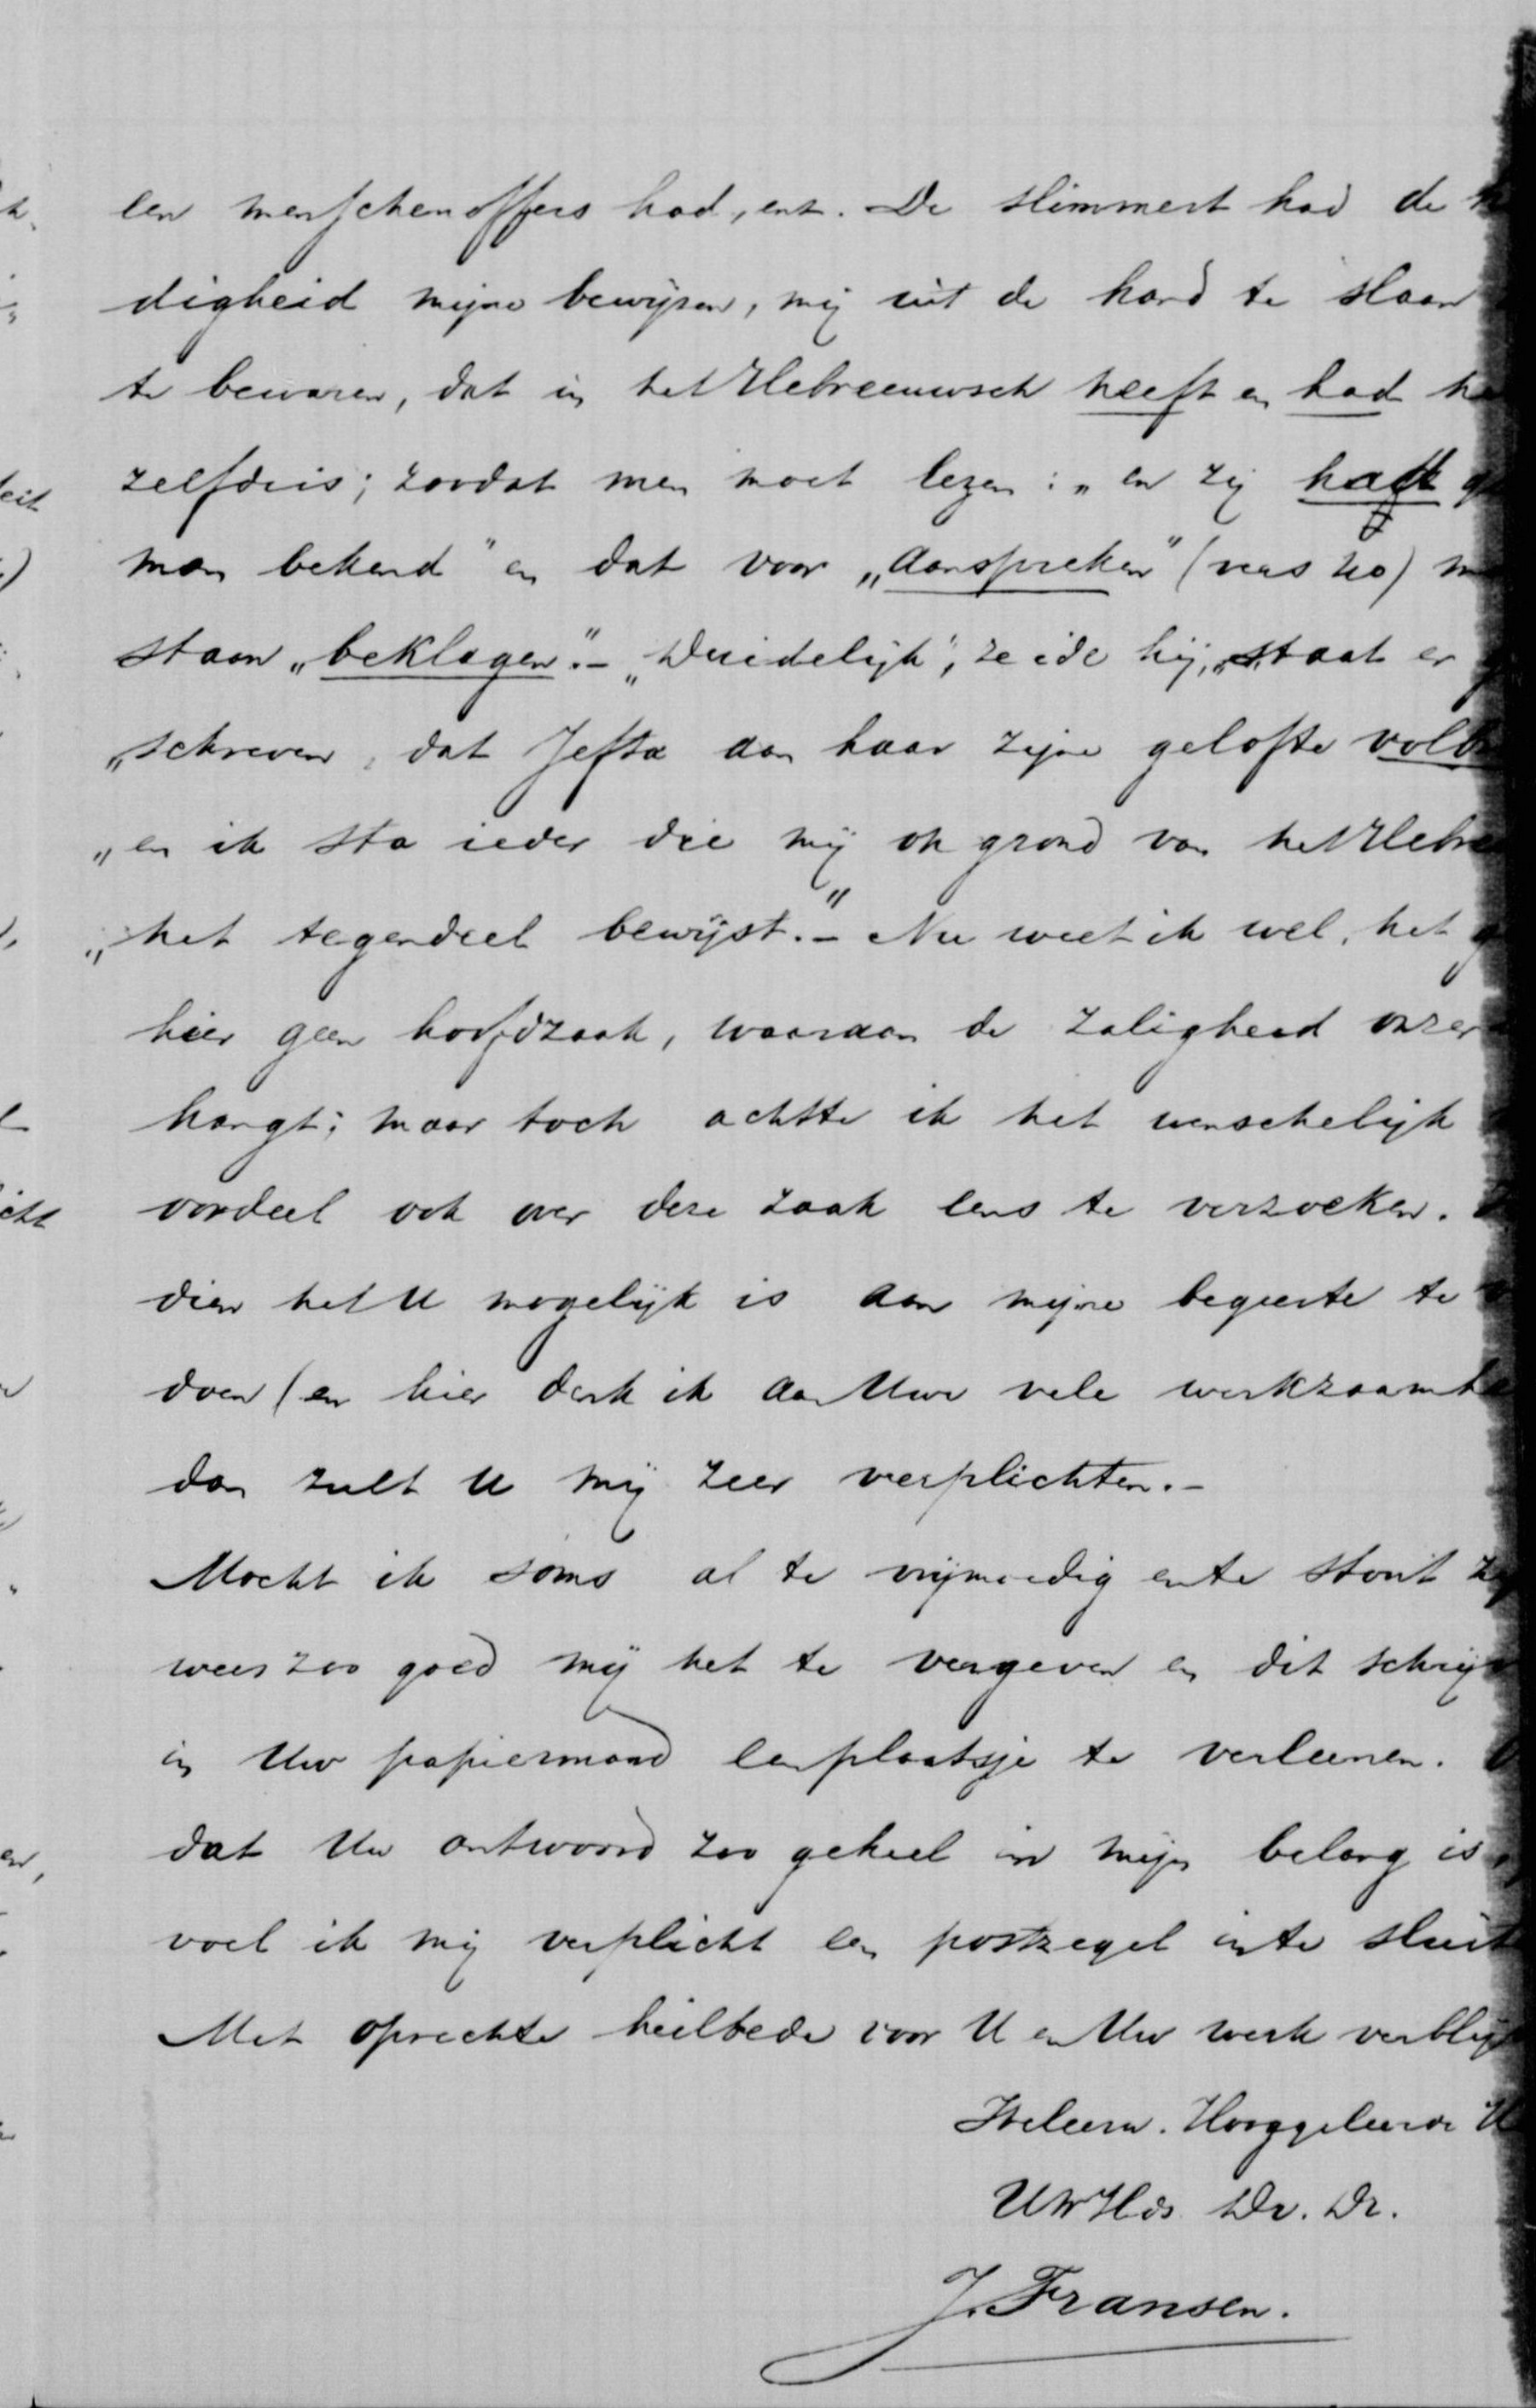 een menschenoffers had, enz. De slimmert had de
digheid mijne bewijzen, mij uit de hand te slaan
te beweren, dat in het Hebreeuwsch heeft en had he
zelfde is; zoodat men moet lezen: „en zij had g
man bekend" en dat voor „aanspreken" (vers 40) m
staan „beklagen". – „Duidelijk", zeide hij, „staat er g
„schreven, dat Jefta aan haar zijne gelofte volb
„en ik sta ieder die mij op grond van het Hebre
„het tegendeel bewijst." – Nu weet ik wel, het g
hier geen hoofdzaak, waaraan de zaligheid onzer
hangt; maar toch achtte ik het wenschelijk
oordeel ook over deze zaak eens te verzoeken.
dien het U mogelijk is aan mijne begeerte te
doen (en hier denk ik aan Uwe vele werkzaamhe
dan zult U mij zeer verplichten. –
Mocht ik soms al te vrijmoedig en te stout zij
wees zoo goed mij het te vergeven en dit schrij
in Uw papiermand een plaatsje te verleenen.
dat Uw antwoord zoo geheel in mijn belang is,
voel ik mij verplicht een postzegel in te sluit
Met oprechte heilbede voor U en Uw werk verblijf
Weleerw. Hooggeleerde H
UWHds. Dw. Dr.
J. Fransen.